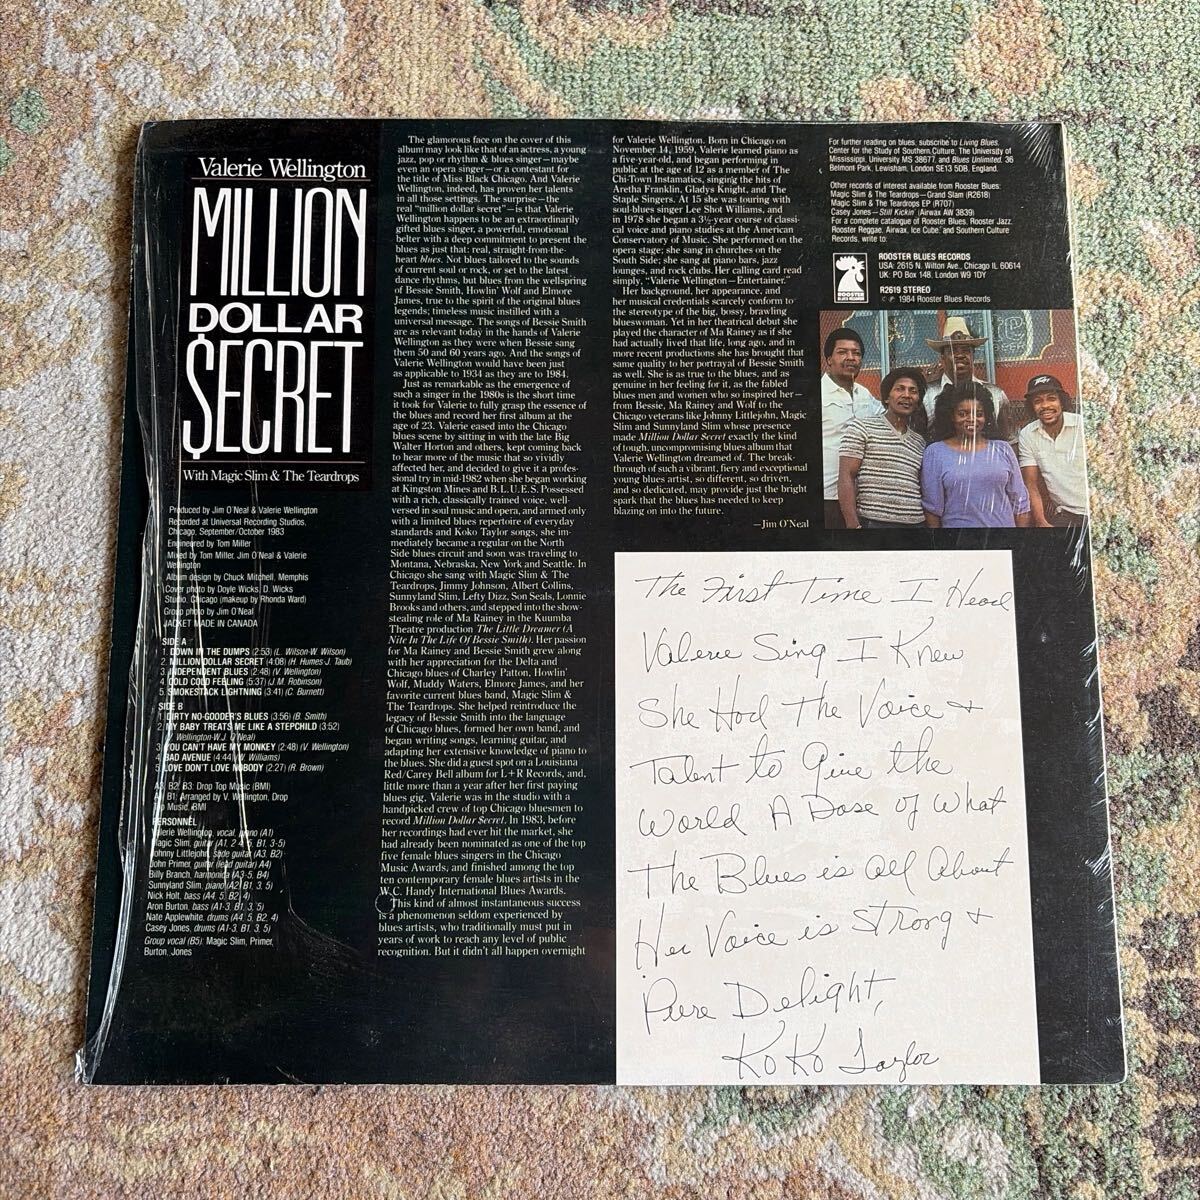 Valerie Wellington
MILLION
DOLLAR
$ECRET
With Magic Slim & The Teardrops
Produced by Jim O'Neal & Valerie Wellington
Recorded at Universal Recording Studios,
Chicago, September/October 1983
Engineered by Tom Miller
Mixed by Tom Miller, Jim O'Neal & Valerie
Wellington
Album design by Chuck Mitchell, Memphis
Cover photo by Doyle Wicks, D. Wicks
Studio, Chicago (makeup by Rhonda Ward)
Group photo by Jim O'Neal
JACKET MADE IN CANADA
SIDE A
1. DOWN IN THE DUMPS (2:53) (L. Wilson-W. Wilson)
2. MILLION DOLLAR SECRET (4:08) (H. Humes-J. Taub)
3. INDEPENDENT BLUES (2:48) (V. Wellington)
4. COLD COLD FEELING (5:37) (J.M. Robinson)
5. SMOKESTACK LIGHTNING (3:41) (C. Burnett)
SIDE B
1. DIRTY NO-GOODER'S BLUES (3:56) (B. Smith)
2. MY BABY TREATS ME LIKE A STEPCHILD (3:52)
(V. Wellington-W.J. O'Neal)
3. YOU CAN'T HAVE MY MONKEY (2:48) (V. Wellington)
4. BAD AVENUE (4:44) (V. Williams)
5. LOVE DON'T LOVE NOBODY (2:27) (R. Brown)
A3, B2, B3: Drop Top Music (BMI)
A1, B1: Arranged by V. Wellington, Drop
Top Music, BMI
PERSONNEL
Valerie Wellington, vocal, piano (A1)
Magic Slim, guitar (A1, 2, 4, 5, B1, 3-5)
Johnny Littlejohn, slide guitar (A3, B2)
John Primer, guitar (lead guitar) (A4)
Billy Branch, harmonica (A3-5, B4)
Sunnyland Slim, piano (A2, B1, 3, 5)
Nick Holt, bass (A4, 5, B2, 4)
Aron Burton, bass (A1-3, B1, 3, 5)
Nate Applewhite, drums (A4, 5, B2, 4)
Casey Jones, drums (A1-3, B1, 3, 5)
Group vocal (B5): Magic Slim, Primer,
Burton, Jones
The glamorous face on the cover of this
album may look like that of an actress, a young
jazz, pop or rhythm & blues singer—maybe
even an opera singer—or a contestant for
the title of Miss Black Chicago. And Valerie
Wellington, indeed, has proven her talents
in all those settings. The surprise—the
real "million dollar secret"—is that Valerie
Wellington happens to be an extraordinarily
gifted blues singer, a powerful, emotional
belter with a deep commitment to present the
blues as just that: real, straight-from-the-
heart blues. Not blues tailored to the sounds
of current soul or rock, or set to the latest
dance rhythms, but blues from the wellspring
of Bessie Smith, Howlin' Wolf and Elmore
James, true to the spirit of the original blues
legends; timeless music instilled with a
universal message. The songs of Bessie Smith
are as relevant today in the hands of Valerie
Wellington as they were when Bessie sang
them 50 and 60 years ago. And the songs of
Valerie Wellington would have been just
as applicable to 1934 as they are to 1984.
Just as remarkable as the emergence of
such a singer in the 1980s is the short time
it took for Valerie to fully grasp the essence of
the blues and record her first album at the
age of 23. Valerie eased into the Chicago
blues scene by sitting in with the late Big
Walter Horton and others, kept coming back
to hear more of the music that so vividly
affected her, and decided to give it a profes-
sional try in mid-1982 when she began working
at Kingston Mines and B.L.U.E.S. Possessed
with a rich, classically trained voice, well-
versed in soul music and opera, and armed only
with a limited blues repertoire of everyday
standards and Koko Taylor songs, she im-
mediately became a regular on the North
Side blues circuit and soon was traveling to
Montana, Nebraska, New York and Seattle. In
Chicago she sang with Magic Slim & The
Teardrops, Jimmy Johnson, Albert Collins,
Sunnyland Slim, Lefty Dizz, Son Seals, Lonnie
Brooks and others, and stepped into the show-
stealing role of Ma Rainey in the Kuumba
Theatre production The Little Dreamer (A
Nite In The Life Of Bessie Smith). Her passion
for Ma Rainey and Bessie Smith grew along
with her appreciation for the Delta and
Chicago blues of Charley Patton, Howlin'
Wolf, Muddy Waters, Elmore James, and her
favorite current blues band, Magic Slim &
The Teardrops. She helped reintroduce the
legacy of Bessie Smith into the language
of Chicago blues, formed her own band, and
began writing songs, learning guitar, and
adapting her extensive knowledge of piano to
the blues. She did a guest spot on a Louisiana
Red/Carey Bell album for L+R Records, and,
little more than a year after her first paying
blues gig, Valerie was in the studio with a
handpicked crew of top Chicago bluesmen to
record Million Dollar Secret. In 1983, before
her recordings had ever hit the market, she
had already been nominated as one of the top
five female blues singers in the Chicago
Music Awards, and finished among the top
ten contemporary female blues artists in the
W.C. Handy International Blues Awards.
This kind of almost instantaneous success
is a phenomenon seldom experienced by
blues artists, who traditionally must put in
years of work to reach any level of public
recognition. But it didn't all happen overnight
for Valerie Wellington. Born in Chicago on
November 14, 1959, Valerie learned piano as
a five-year-old, and began performing in
public at the age of 12 as a member of The
Chi-Town Instamatics, singing the hits of
Aretha Franklin, Gladys Knight, and The
Staple Singers. At 15 she was touring with
soul-blues singer Lee Shot Williams, and
in 1978 she began a 3½-year course of classi-
cal voice and piano studies at the American
Conservatory of Music. She performed on the
opera stage; she sang in churches on the
South Side; she sang at piano bars, jazz
lounges, and rock clubs. Her calling card read
simply, "Valerie Wellington—Entertainer."
Her background, her appearance, and
her musical credentials scarcely conform to
the stereotype of the big, bossy, brawling
blueswoman. Yet in her theatrical debut she
played the character of Ma Rainey as if she
had actually lived that life, long ago, and in
more recent productions she has brought that
same quality to her portrayal of Bessie Smith
as well. She is as true to the blues, and as
genuine in her feeling for it, as the fabled
blues men and women who so inspired her—
from Bessie, Ma Rainey and Wolf to the
Chicago veterans like Johnny Littlejohn, Magic
Slim and Sunnyland Slim whose presence
made Million Dollar Secret exactly the kind
of tough, uncompromising blues album that
Valerie Wellington dreamed of. The break-
through of such a vibrant, fiery and exceptional
young blues artist, so different, so driven,
and so dedicated, may provide just the bright
spark that the blues has needed to keep
blazing on into the future.
—Jim O'Neal
For further reading on blues, subscribe to Living Blues,
Center for the Study of Southern Culture, The University of
Mississippi, University MS 38677, and Blues Unlimited, 36
Belmont Park, Lewisham, London SE13 5DB, England.
Other records of interest available from Rooster Blues:
Magic Slim & The Teardrops—Grand Slam (R2618)
Magic Slim & The Teardrops EP (R707)
Casey Jones—Still Kickin' (Airwax AW 3839)
For a complete catalogue of Rooster Blues, Rooster Jazz,
Rooster Reggae, Airwax, Ice Cube, and Southern Culture
Records, write to:
ROOSTER
BLUES RECORDS
ROOSTER BLUES RECORDS
USA: 2615 N. Wilton Ave., Chicago IL 60614
UK: PO Box 148, London W9 1DY
R2619 STEREO
© ℗ 1984 Rooster Blues Records
Peavey
The First Time I Head
Valerie Sing I Knew
She Had The Voice +
Talent to Give the
World A Dose of What
The Blues is all About
Her Voice is Strong +
Pure Delight,
KoKo Taylor